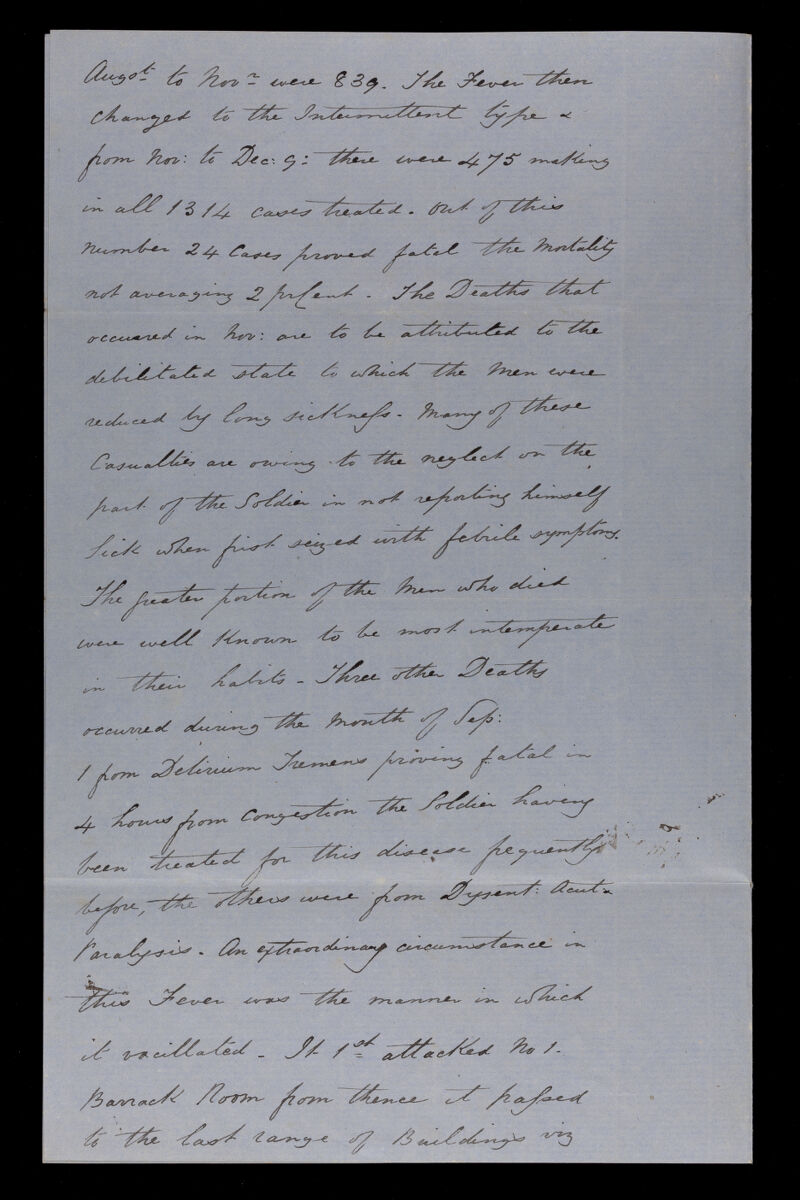 Augst to Novr were 839. The Fever then
changed to the Intermittent type &
from Nov: to Dec: 9: there were 475 making
in all 1314 cases treated. Out of this
number 24 Cases proved fatal the Mortality
not averaging 2 prCent. The Deaths that
occurred in Nov: are to be attributed to the
debilitated state to which the Men were
reduced by long sickness. Many of these
Casualties are owing to the neglect on the
part of the Soldier in not reporting himself
Sick when first seized with febrile symptoms.
The greater portion of the Men who died
were well Known to be most intemperate
in their habits - Three other Deaths
occurred during the Month of Sep:
1 from Delirium Tremens proving fatal in
4 hours from Congestion the Soldier having
been treated for this disease frequently
before, the others were from Dysent: Acut &
Paralysis. An extraordinary circumstance in
this Fever was the manner in which
it vacillated - It 1st attacked No 1.
Barrack Room from thence it passed
to the last range of Buildings viz